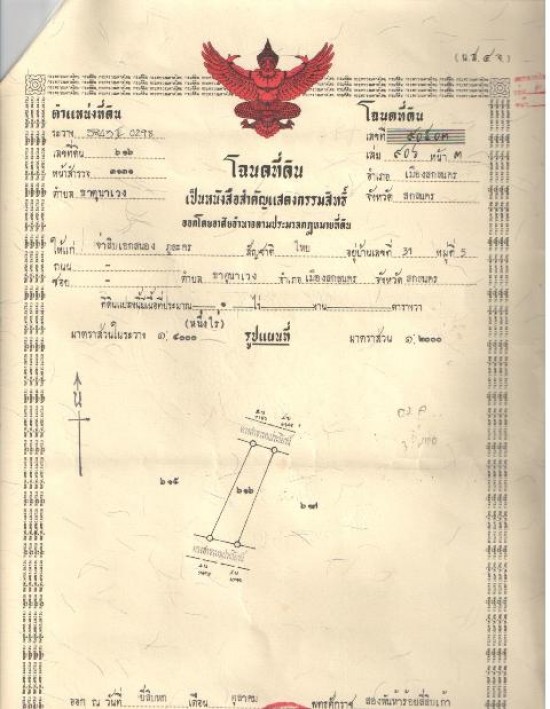 (น.ส. ๔ จ)
ตำแหน่งที่ดิน
โฉนดที่ดิน
ระวาง 5843 II 0298
เลขที่
เลขที่ดิน ๖๑๖
เล่ม ๙๐๖ หน้า ๓
หน้าสำรวจ
โฉนดที่ดิน
อำเภอ เมืองสกลนคร
ตำบล ธาตุนาเวง
เป็นหนังสือสำคัญแสดงกรรมสิทธิ์
จังหวัด สกลนคร
ออกโดยอาศัยอำนาจตามประมวลกฎหมายที่ดิน
ให้แก่ จ่าสิบเอกสนอง สัญชาติ ไทย อยู่บ้านเลขที่ 31 หมู่ที่ 5
ถนน -
ซอย - ตำบล ธาตุนาเวง อำเภอ เมืองสกลนคร จังหวัด สกลนคร
ที่ดินแปลงนี้มีเนื้อที่ประมาณ ๑ ไร่ งาน ตารางวา
(หนึ่งไร่)
มาตราส่วนในระวาง ๑: ๔๐๐๐ รูปแผนที่ มาตราส่วน ๑: ๒๐๐๐
น
ทางสาธารณประโยชน์
๖๑๕ ๖๑๖ ๖๑๗
ทางสาธารณประโยชน์
ออก ณ วันที่ ยี่สิบหก เดือน ตุลาคม พุทธศักราช สองพันห้าร้อยสี่สิบเก้า